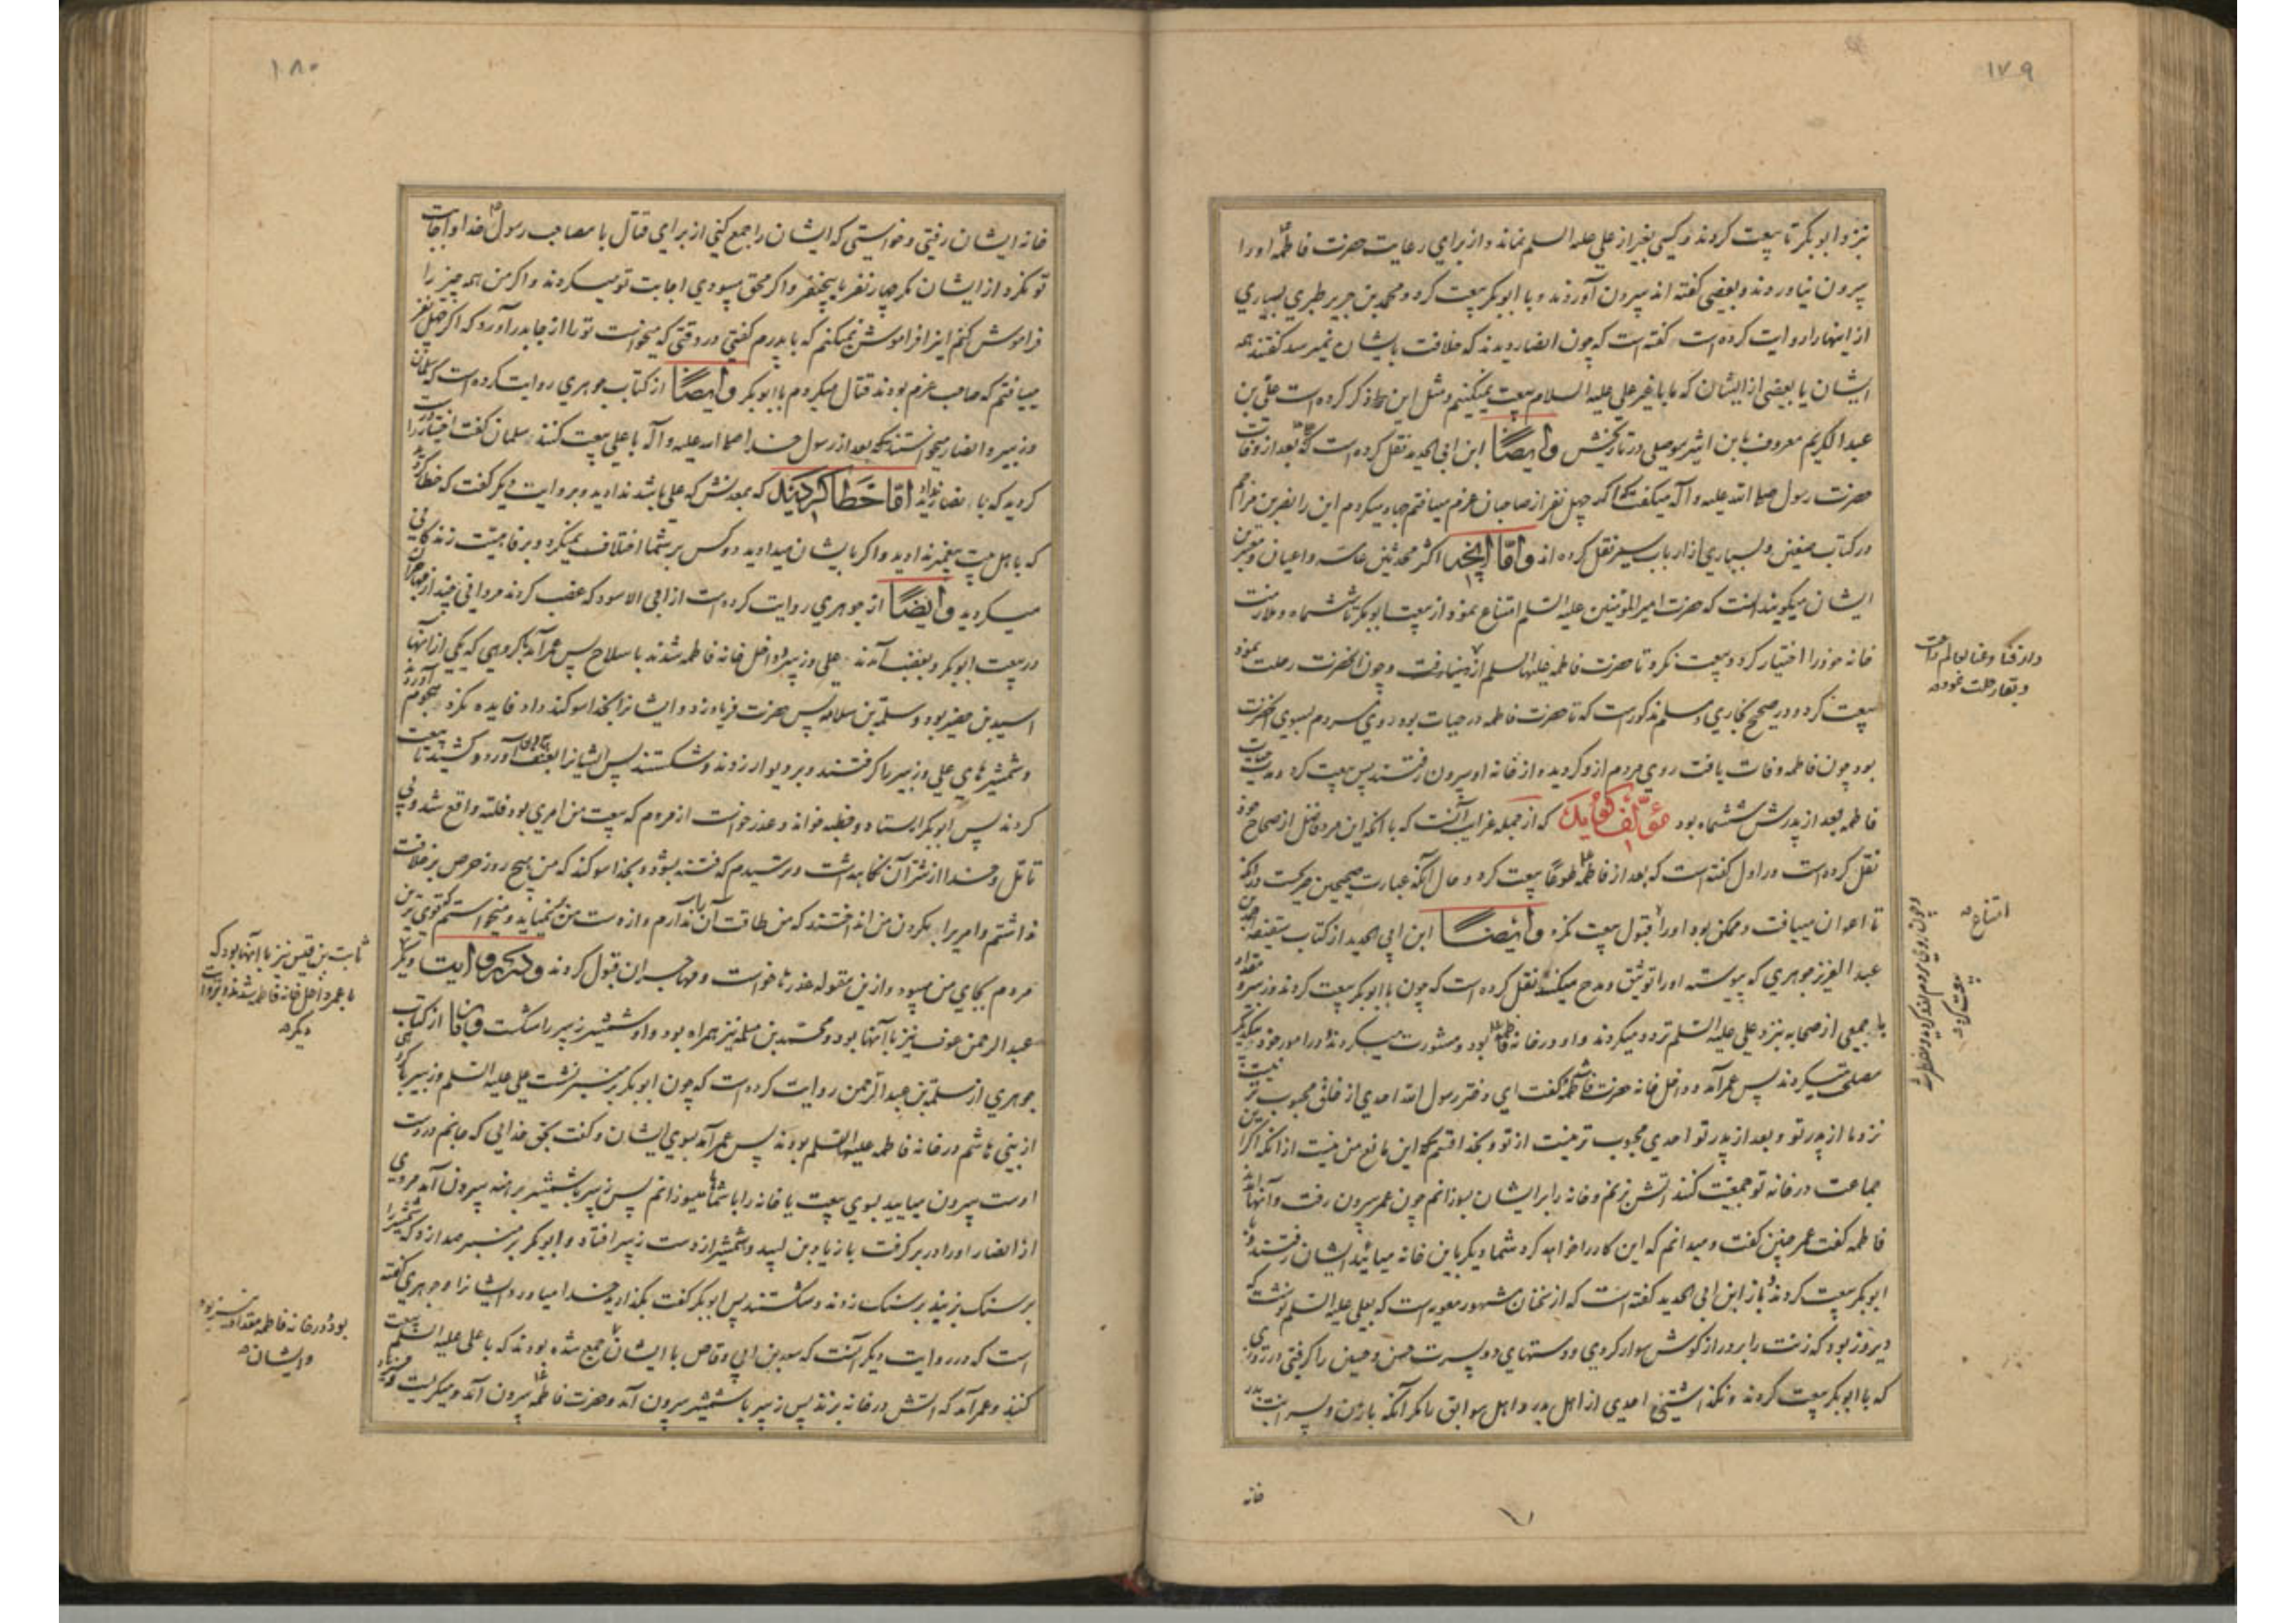 ۱۷۹
نزد ابوبکر تا بیعت کردند و کسی بغیر از علی علیه السلم نماند و از برای رعایت حضرت فاطمه اورا
بیرون نیاوردند و بعضی گفته اند بیرون آوردند و با ابوبکر بیعت کرد و محمد بن جریر طبری بسیاری
از اینها را روایت کرده است گفته است که چون انصار دیدند که خلافت بایشان نمیرسد گفتند همه
ایشان یا بعضی از ایشان که ما با غیر علی علیه السلام بیعت نمیکنیم و مثل این را ذکر کرده است علی بن
عبد الکریم معروف بابن اثیر موصلی در تاریخش وایضاً ابن ابی الحدید نقل کرده است که بعد از وفات
حضرت رسول صلی الله علیه و آله میگفت که اگر چهل نفر از صاحبان عزم مییافتم جهاد میکردم این را نصر بن مزاحم
در کتاب صفین و بسیاری از ارباب سیر نقل کرده اند واما آنچه اکثر محدثین عامه و اعیان و معتبرین
ایشان میگویند آنست که حضرت امیر المؤمنین علیه السلم امتناع نمود از بیعت ابوبکر تا ششماه و ملازمت
خانه خود را اختیار کرد و بیعت نکرد تا حضرت فاطمه علیها السلم از دنیا رفت و چون آنحضرت رحلت نمود
بیعت کرد و در صحیح بخاری و مسلم مذکور است که تا حضرت فاطمه در حیات بود روی مردم بسوی آنحضرت
بود چون فاطمه وفات یافت روی مردم از و گردید و از خانه او بیرون رفتند پس بیعت کرد و مدت حیات
فاطمه بعد از پدرش ششماه بود مؤلف گوید که از جمله غرایب آنست که با آنکه این مرد فاضل از صحاح خود
نقل کرده است در اول گفته است که بعد از فاطمه طوعاً بیعت کرد و حال آنکه عبارت صحیحین صریحست در آنکه
تا اعوان مییافت و ممکن بود اورا قبول بیعت نکرد وایضاً ابن ابی الحدید از کتاب سقیفه احمد بن
عبد العزیز جوهری که پیوسته اورا توثیق و مدح میکند نقل کرده است که چون با ابوبکر بیعت کردند و زبیر و مقداد
با جمعی از صحابه نزد علی علیه السلم تردد میکردند و او در خانه فاطمه بود و مشورت میکردند و در امور خود با یکدیگر
مصلحت میکردند پس عمر آمد و داخل خانه حضرت فاطمه گفت ای دختر رسول الله احدی از خلق محبوب تر نیست
نزد ما از پدر تو و بعد از پدر تو احدی محبوب تر نیست از تو و بخدا قسم که این مانع من نیست از آنکه اگر این
جماعت در خانه تو جمعیت کنند آتش بزنم و خانه را بر ایشان بسوزانم چون عمر بیرون رفت و آنها آمدند
فاطمه گفت عمر چنین گفت و میدانم که این کار را خواهد کرد شما دیگر باین خانه میائید ایشان رفتند و با
ابوبکر بیعت کردند و باز ابن ابی الحدید گفته است که از سخنان مشهور معویه است که بعلی علیه السلم نوشت که
دیروز بود که زنت را بر دراز گوش سوار کردی و دستهای دو پسرت حسن و حسین را گرفتی در روزی
که با ابوبکر بیعت کردند و نگذاشتی احدی از اهل بدر و اهل سوابق را مگر آنکه با زن و پسرانت بدر
خانه
امتناع
بیعت کرد
۱۸۰
خانه ایشان رفتی و خواستی که ایشان را جمع کنی از برای قتال با مصاحب رسول خدا و اجابت
تو نکرد از ایشان مگر چهار نفر یا پنجنفر و اگر محق میبودی اجابت تو میکردند و اگر من همه چیز را
فراموش کنم اینرا فراموش نمیکنم که با پدرم گفتی در وقتی که میخواست تو را از جا بدر آورد که اگر چهل نفر
مییافتم که صاحب عزم بودند قتال میکردم با ابوبکر وایضاً از کتاب جوهری روایت کرده است که سلمان
و زبیر و انصار میخواستند که بعد از رسول خدا صلی الله علیه و آله با علی بیعت کنند سلمان گفت اختیار را درست
کردید که با انصار نداد اما خطا کردید که بمعدنش که علی باشد ندادید و بروایت دیگر گفت که خطا کردید
که باهل بیت پیغمبر ندادید و اگر بایشان میدادید دو کس بر شما اختلاف نمیکرد و برفاهیت زندگانی
میکردید وایضاً از جوهری روایت کرده است از ابی الاسود که غضب کردند مردانی چند از مهاجران
در بیعت ابوبکر و بغضب آمدند علی و زبیر و داخل خانه فاطمه شدند با سلاح پس عمر آمد با گروهی که یکی از آنها
اسید بن حضیر بود و سلمة بن سلامه پس حضرت فریاد زد و ایشانرا بخدا سوگند داد فایده نکرد هجوم آوردند
و شمشیرهای علی و زبیر را گرفتند و بر دیوار زدند و شکستند پس ایشانرا بعنف بیرون آورد و کشید تا بیعت
کردند پس ابوبکر ایستاد و خطبه خواند و عذر خواست از مردم که بیعت من امری بود فلته واقع شد و بی
تأمل و خدا از شر آن نگاهداشت و ترسیدم که فتنه بشود و بخدا سوگند که من هیچ روز حرص بر خلافت
نداشتم و امریرا بگردن من انداختند که من طاقت آن ندارم و از دست من نمیاید و میخواستم که قوی ترین
مردم بجای من میبود و ازین مقوله عذرها خواست و مهاجران قبول کردند و در روایت دیگر
عبد الرحمن عوف نیز با آنها بود و محمد بن مسلمه نیز همراه بود و او شمشیر زبیر را شکست وباز از کتاب
جوهری از سلمة بن عبد الرحمن روایت کرده است که چون ابوبکر بر منبر نشست علی علیه السلم و زبیر با گروهی
از بنی هاشم در خانه فاطمه علیها السلم بودند پس عمر آمد بسوی ایشان و گفت بحق خدائی که جانم در دست
اوست بیرون میایید بسوی بیعت یا خانه را با شما میسوزانم پس زبیر با شمشیر برهنه بیرون آمد مردی
از انصار اورا در بر گرفت با زیاد بن لبید و شمشیر از دست زبیر افتاد و ابوبکر بر منبر صدا زد که شمشیر را
بر سنک بزنید بر سنک زدند و شکستند پس ابوبکر گفت بگذارید خدا میاورد ایشانرا و جوهری گفته
است که در روایت دیگر آنست که سعد بن ابی وقاص با ایشان جمع شده بودند که با علی علیه السلم بیعت
کنند و عمر آمد که آتش در خانه بزند پس زبیر با شمشیر بیرون آمد و حضرت فاطمه بیرون آمد و میگریست و فریاد
ثابت بن قیس نیز با آنها بود که
با عمر داخل خانه فاطمه شدند و بروایت
دیگر
بود و در خانه فاطمه مقداد نیز بود
و ایشان